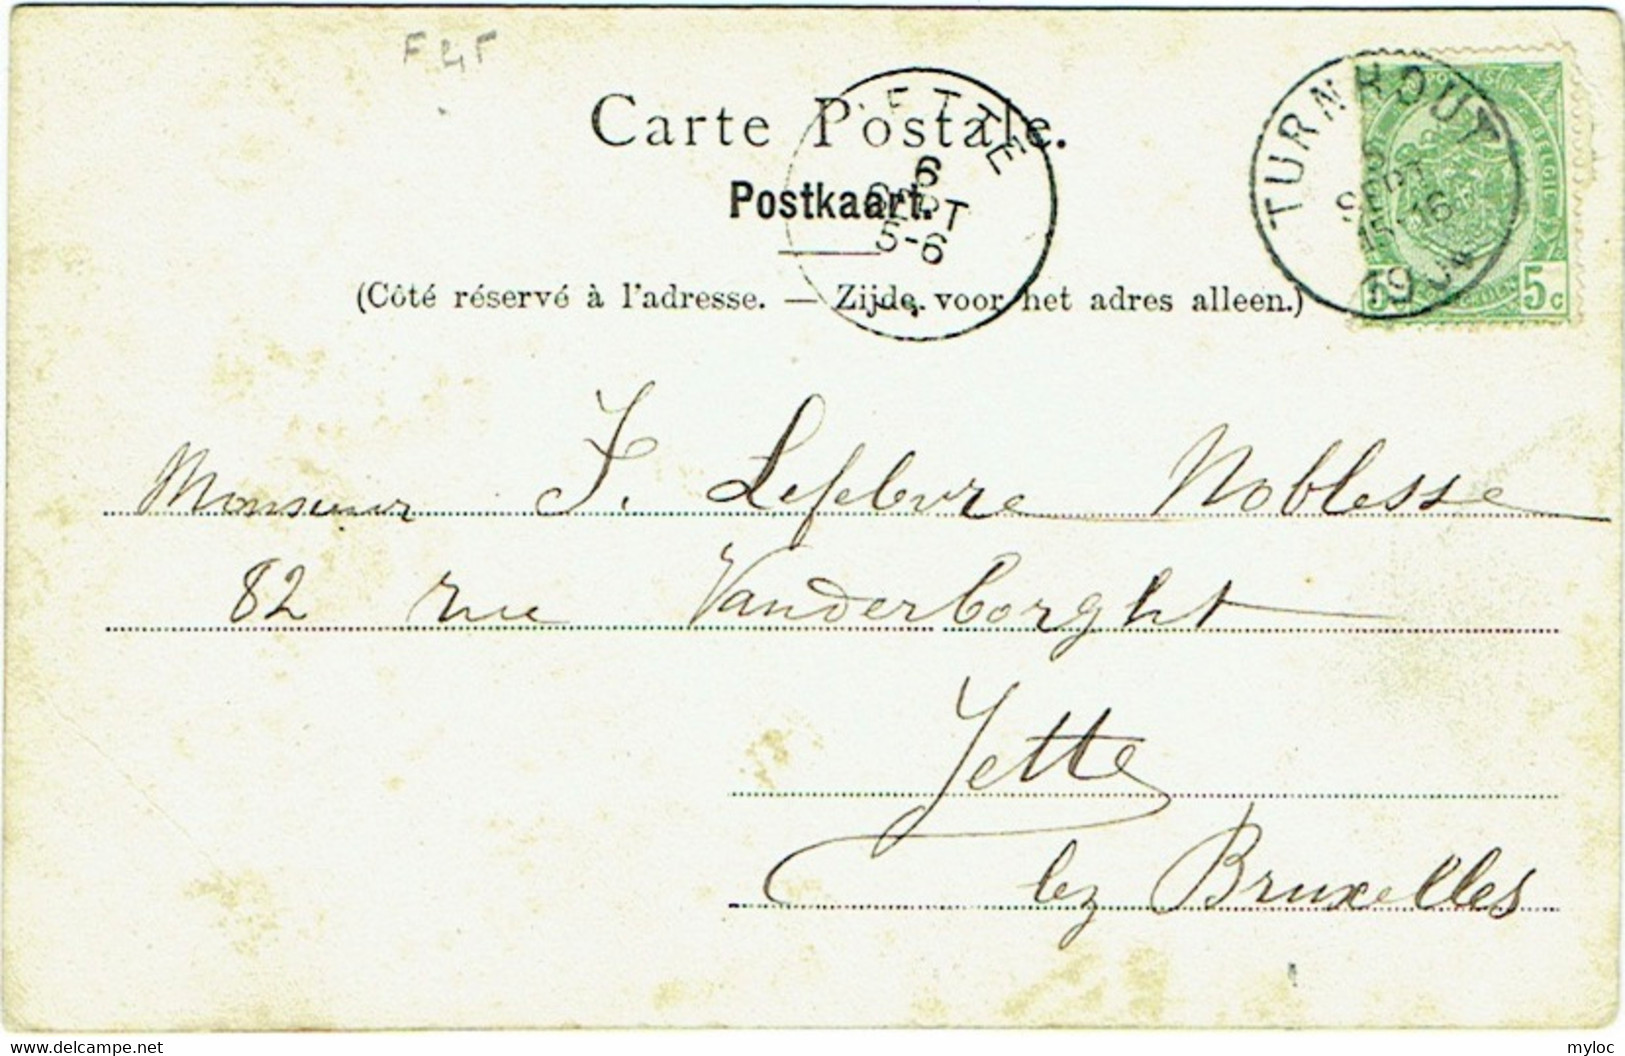 Carte Postale.
Postkaart.
(Côté réservé à l'adresse. — Zijde voor het adres alleen.)
JETTE
6
SEPT
5-6
TURNHOUT
SEPT
16
POSTES
BELGIE
5c
Monsieur J. Lefebvre Noblesse
82 rue Vanderborght
Jette
lez Bruxelles
www.delcampe.net
myloc